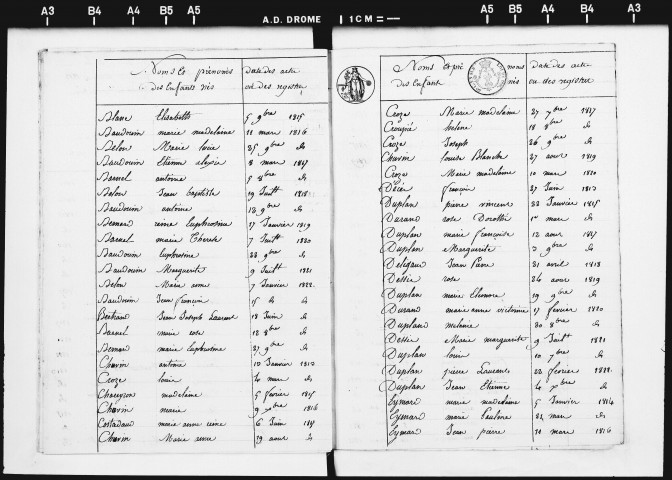 A3 B4 A4 B5 A5 A.D. DROME 1 CM = A5 B5 A4 B4 A3
Noms et prénoms
des Enfants nés
Date des acte
ou des registre
Blanc Elisabeth 5 9bre 1815
Baudouin marie madelaine 11 mars 1816
Belon Marie loise 25 9bre de
Baudouin Etienne aloyse 8 mars 1817
Barnel antoine 5 8bre de
Belon Jean baptiste 19 Juillt 1818
Baudouin antoine 12 9bre de
Bernard reine Euphrosine 17 Janvier 1819
Barnel marie Therese 7 Juillt 1820
Baudouin Euphrosine 28 9bre de
Baudouin Marguerite 9 Juillt 1821
Belon Marie anne 7 Janvier 1822
Baudouin Jean francois 15 de de
Bertrand Jean Joseph Laurent 18 Juin de
Barnel marie rose 12 8bre de
Bernard marie Euphrosine 27 9bre de
Chavin antoine 10 Janvier 1813
Croze louise 4 mars de
Chareyron madelaine 5 fevrier 1815
Chavin marie 9 xbre 1816
Costadau marie anne reine 6 Juin 1817
Chavin Marie anne 29 aout de
Noms et pré noms
des Enfant nés
Date des acte
ou des registre
Croze Marie madelaine 27 7bre 1817
helene 18 8bre de
Croze Joseph 26 9bre de
Chavin louise Blanche 27 avril 1819
Croze Marie madelaine 10 mars 1820
francois 27 Juin 1813
Duplan pierre vincent 22 Janvier 1815
Durand rose Dorothé 1er mars de
Duplan marie françoise 12 avril 1817
Duplan Marguerite 2 9bre de
Jean Pierre 21 avril 1818
rose 26 avril 1819
Duplan marie Eleonore 19 9bre de
Durand marie anne victoirine 17 fevrier 1820
Duplan melanie 30 8bre de
Marie marguerite 9 Juillt 1821
Duplan louis 10 7bre de
Duplan pierre Laurent 22 fevrier 1822
Duplan Jean Etienne 4 xbre de
Eymard marie madelaine 5 Janvier 1814
Eymard marie Pauline 22 mars de
Eymard Jean pierre 31 mars 1816